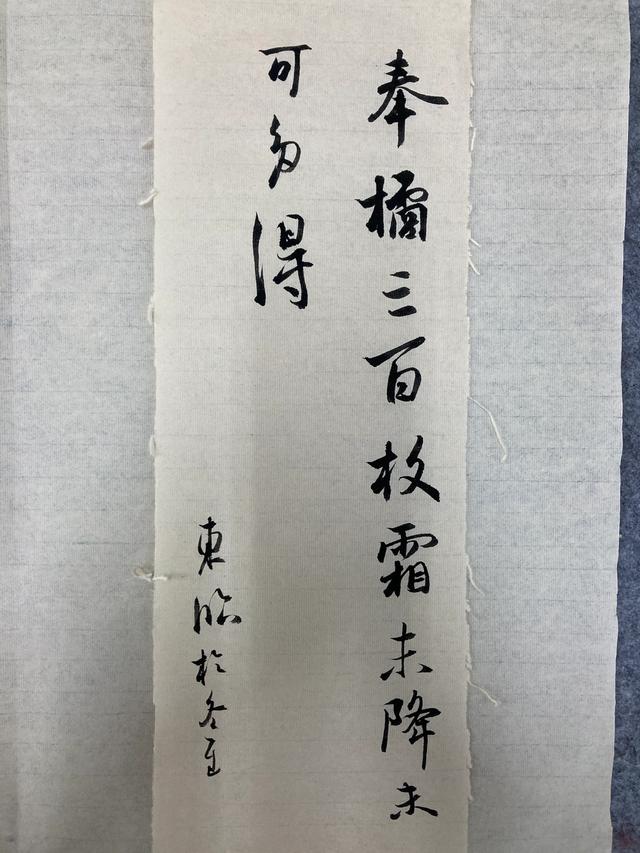 奉橘三百枚霜未降未
可多得
東臨於冬至